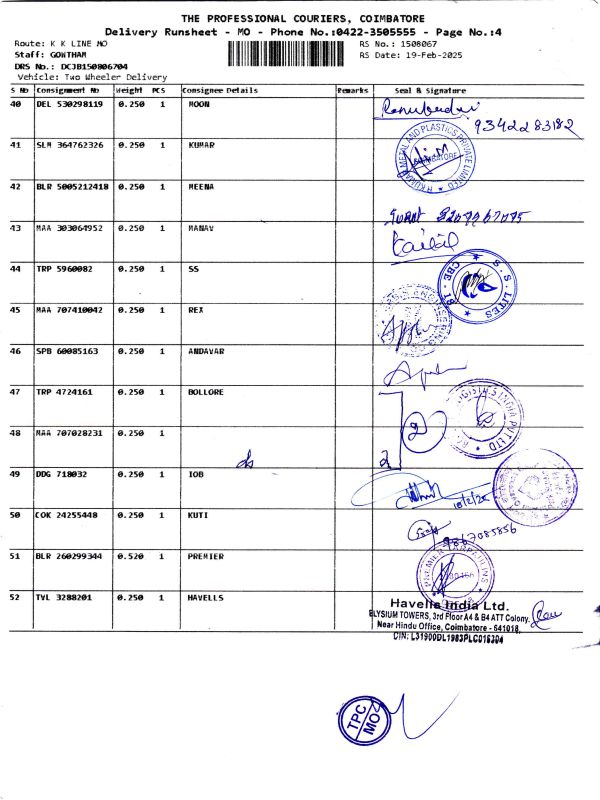 THE PROFESSIONAL COURIERS, COIMBATORE
Delivery Runsheet - MO - Phone No.:0422-3505555 - Page No.:4
Route: K K LINE MO RS No.: 1508067
Staff: GOWTHAM RS Date: 19-Feb-2025
DRS No.: DCJB150806704
Vehicle: Two Wheeler Delivery
S No Consignment No Weight PCS Consignee Details Remarks Seal & Signature
40 DEL 530298119 0.250 1 MOON
9342283182
41 SLM 364762326 0.250 1 KUMAR
METAL AND PLASTICS PRIVATE LIMITED COIMBATORE
42 BLR 5005212418 0.250 1 MEENA
43 MAA 303064952 0.250 1 MANAV
44 TRP 5960082 0.250 1 SS
S.S. LITES CBE
45 MAA 707410042 0.250 1 REX
46 SPB 60085163 0.250 1 ANDAVAR
47 TRP 4724161 0.250 1 BOLLORE
LOGISTICS INDIA PVT LTD
2
48 MAA 707028231 0.250 1
2
49 DDG 718032 0.250 1 IOB
50 COK 24255448 0.250 1 KUTI
9867085856
51 BLR 260299344 0.520 1 PREMIER
PREMIER TARPAULINS
52 TVL 3288201 0.250 1 HAVELLS
Havells India Ltd.
ELYSIUM TOWERS, 3rd Floor A4 & B4 ATT Colony.
Near Hindu Office, Coimbatore - 641018.
CIN: L31900DL1983PLC016304
TPC
MO